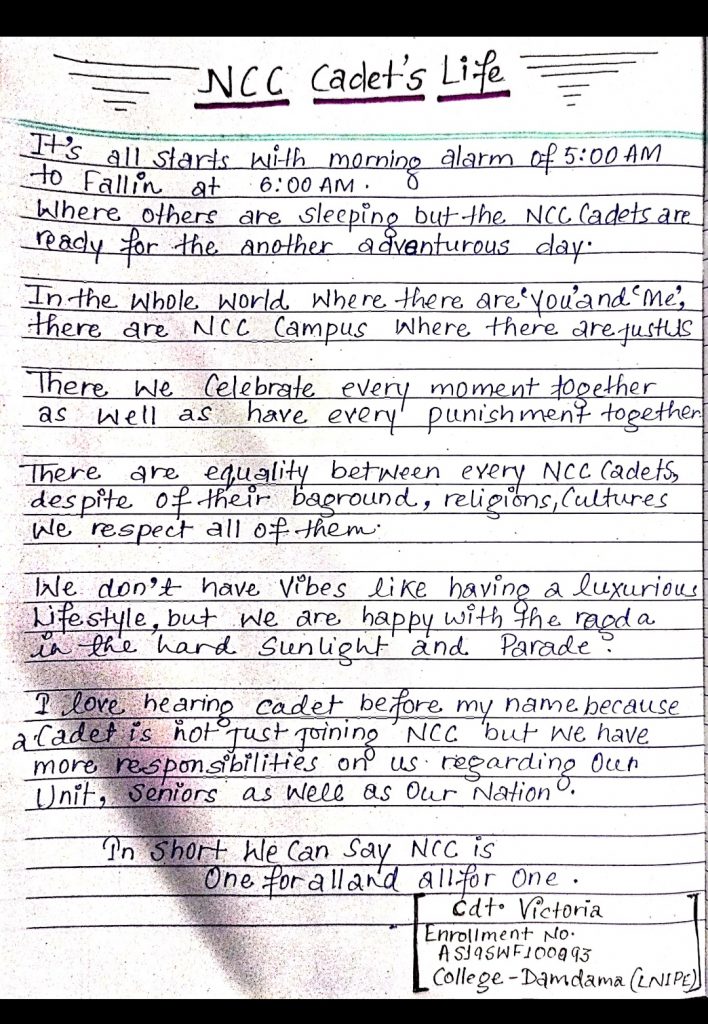 NCC Cadet's Life
It's all starts with morning alarm of 5:00 AM
to Fallin at 6:00 AM.
Where others are sleeping but the NCC Cadets are
ready for the another adventurous day.
In the whole world where there are 'you' and 'me',
there are NCC Campus where there are just us
There we celebrate every moment together
as well as have every punishment together
There are equality between every NCC Cadets,
despite of their baground, religions, Cultures
we respect all of them.
We don't have vibes like having a luxurious
Lifestyle, but we are happy with the ragda
in the hard Sunlight and Parade.
I love hearing cadet before my name because
a Cadet is not just joining NCC but we have
more responsibilities on us regarding Our
Unit, Seniors as well as Our Nation.
In short We Can Say NCC is
One for all and all for One.
Cdt. Victoria
Enrollment No.
College - Damdama (LNIPE)